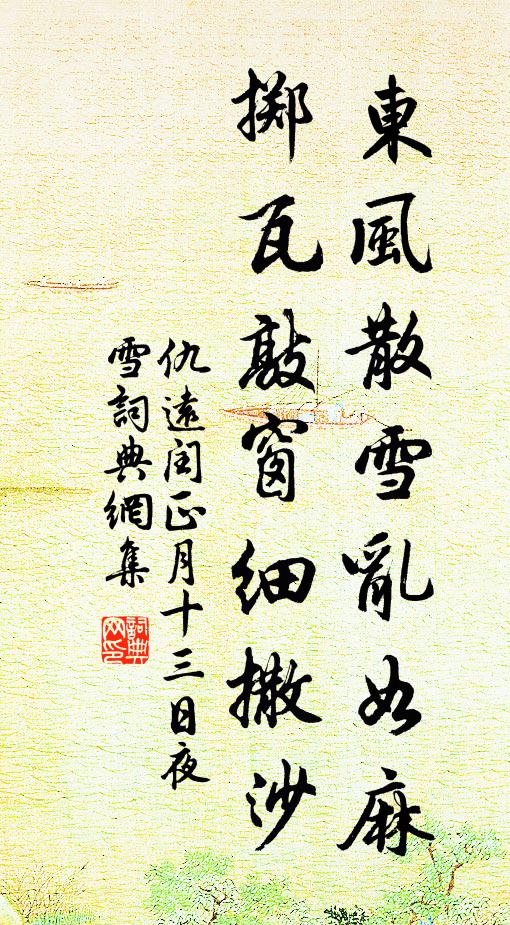 東風散雪亂如麻
擲瓦敲窗細撒沙
仇遠閏正月十三日夜
雪詞典網集
詞典网印